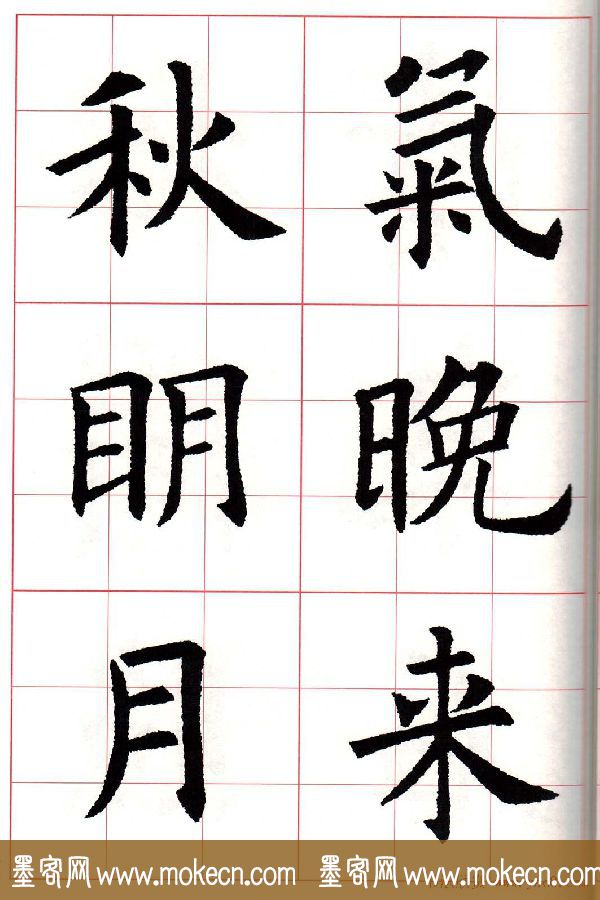 氣晚来
秋眀月
墨客网 www.mokecn.com 墨客网 www.mokecn.com